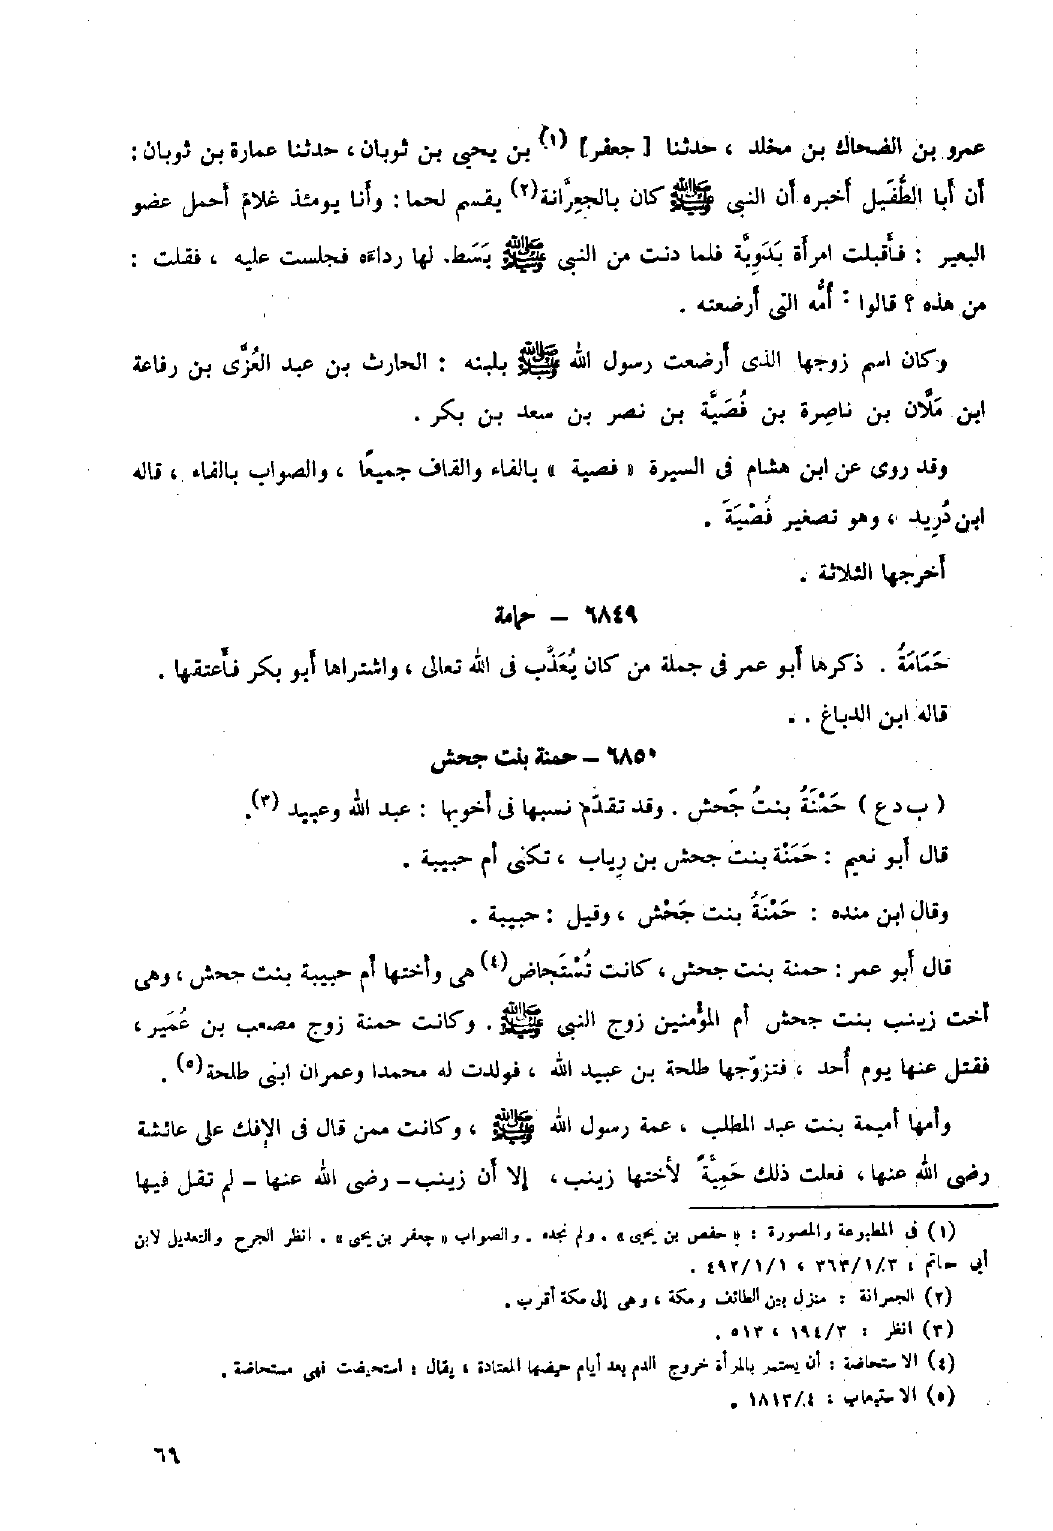 عمرو بن الضحاك بن مخلد ، حدثنا [ جعفر ] (١) بن يحيى بن ثوبان ، حدثنا عمارة بن ثوبان :
أن أبا الطُّفَيل أخبره أن النبى ﷺ كان بالجعِرَّانة (٢) يقسم لحما : وأنا يومئذ غلامٌ أحمل عضو
البعير : فأقبلت امرأة بَدَوِيَّة فلما دنت من النبى ﷺ بَسَط لها رداءه فجلست عليه ، فقلت :
من هذه ؟ قالوا : أُمُّه التى أرضعته .
وكان اسم زوجها الذى أرضعت رسول الله ﷺ بلبنه : الحارث بن عبد العُزَّى بن رفاعة
ابن مَلَّان بن ناصِرة بن فُصَيَّة بن نصر بن سعد بن بكر .
وقد روى عن ابن هشام فى السيرة « فصية » بالفاء والقاف جميعًا ، والصواب بالفاء ، قاله
ابن دُرِيد ، وهو تصغير فَصْيَةَ .
أخرجها الثلاثة .
٦٨٤٩ – حمامة
حَمَامَةُ . ذكرها أبو عمر فى جملة من كان يُعَذَّب فى الله تعالى ، واشتراها أبو بكر فأعتقها .
قاله ابن الدباغ . .
٦٨٥٠ – حمنة بنت جحش
( ب د ع ) حَمْنَةُ بنتُ جَحش . وقد تقدّم نسبها فى أخويها : عبد الله وعبيد (٣).
قال أبو نعيم : حَمَنْة بنت جحش بن رِياب ، تكنى أم حبيبة .
وقال ابن منده : حَمْنَةُ بنت جَحْش ، وقيل : حبيبة .
قال أبو عمر : حمنة بنت جحش ، كانت تُسْتَحاض (٤) هى وأختها أم حبيبة بنت جحش ، وهى
أخت زينب بنت جحش أم المؤمنين زوج النبى ﷺ . وكانت حمنة زوج مصعب بن عُمَير ،
فقتل عنها يوم أُحد ، فتزوّجها طلحة بن عبيد الله ، فولدت له محمدا وعمران ابنى طلحة (٥) .
وأمها أميمة بنت عبد المطلب ، عمة رسول الله ﷺ ، وكانت ممن قال فى الإفك على عائشة
رضى الله عنها ، فعلت ذلك حَمِيَّةً لأختها زينب ، إلا أن زينب – رضى الله عنها – لم تقل فيها
(١) فى المطبوعة والمصورة : « حفص بن يحيى » . ولم نجده . والصواب « جعفر بن يحيى » . انظر الجرح والتعديل لابن
أبى حاتم : ٣٦٣/١/٣ ، ٤٩٢/١/١ .
(٢) الجعرانة : منزل بين الطائف ومكة ، وهى إلى مكة أقرب .
(٣) انظر : ١٩٤/٣ ، ٥١٣ .
(٤) الاستحاضة : أن يستمر بالمرأة خروج الدم بعد أيام حيضها المعتادة ، يقال : استحيضت فهى مستحاضة .
(٥) الاستيعاب : ١٨١٣/٤ .
٦٩